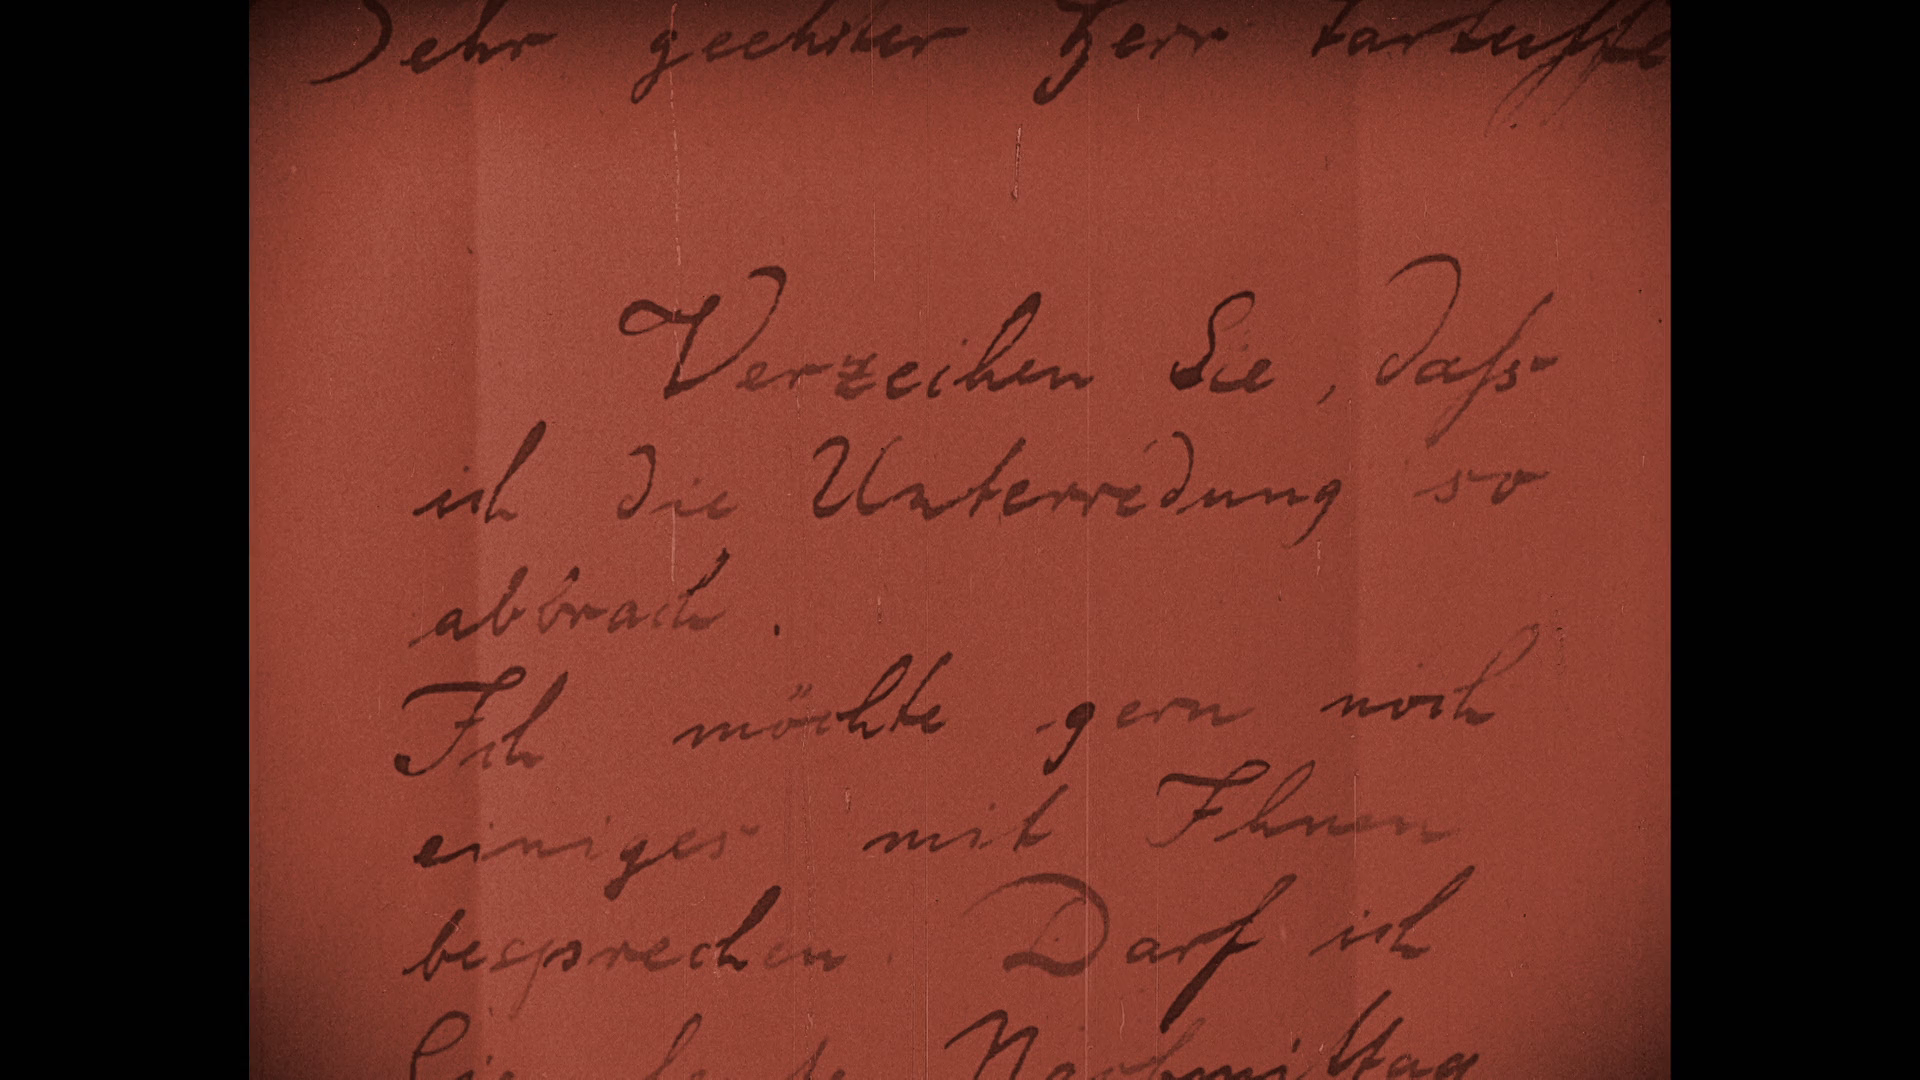 Sehr geehrter Herr Tartüffe
Verzeihen Sie, daſs
ich die Unterredung so
abbrach.
Ich möchte gern noch
einiges mit Ihnen
besprechen. Darf ich
Sie heute Nachmittag